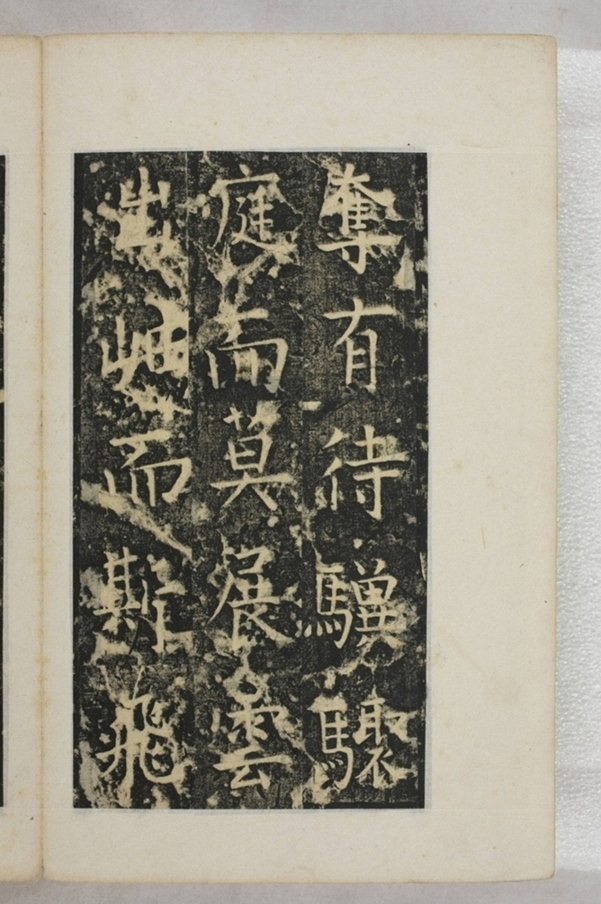 奪有待驟
庭而莫展雲
出岫而斯飛